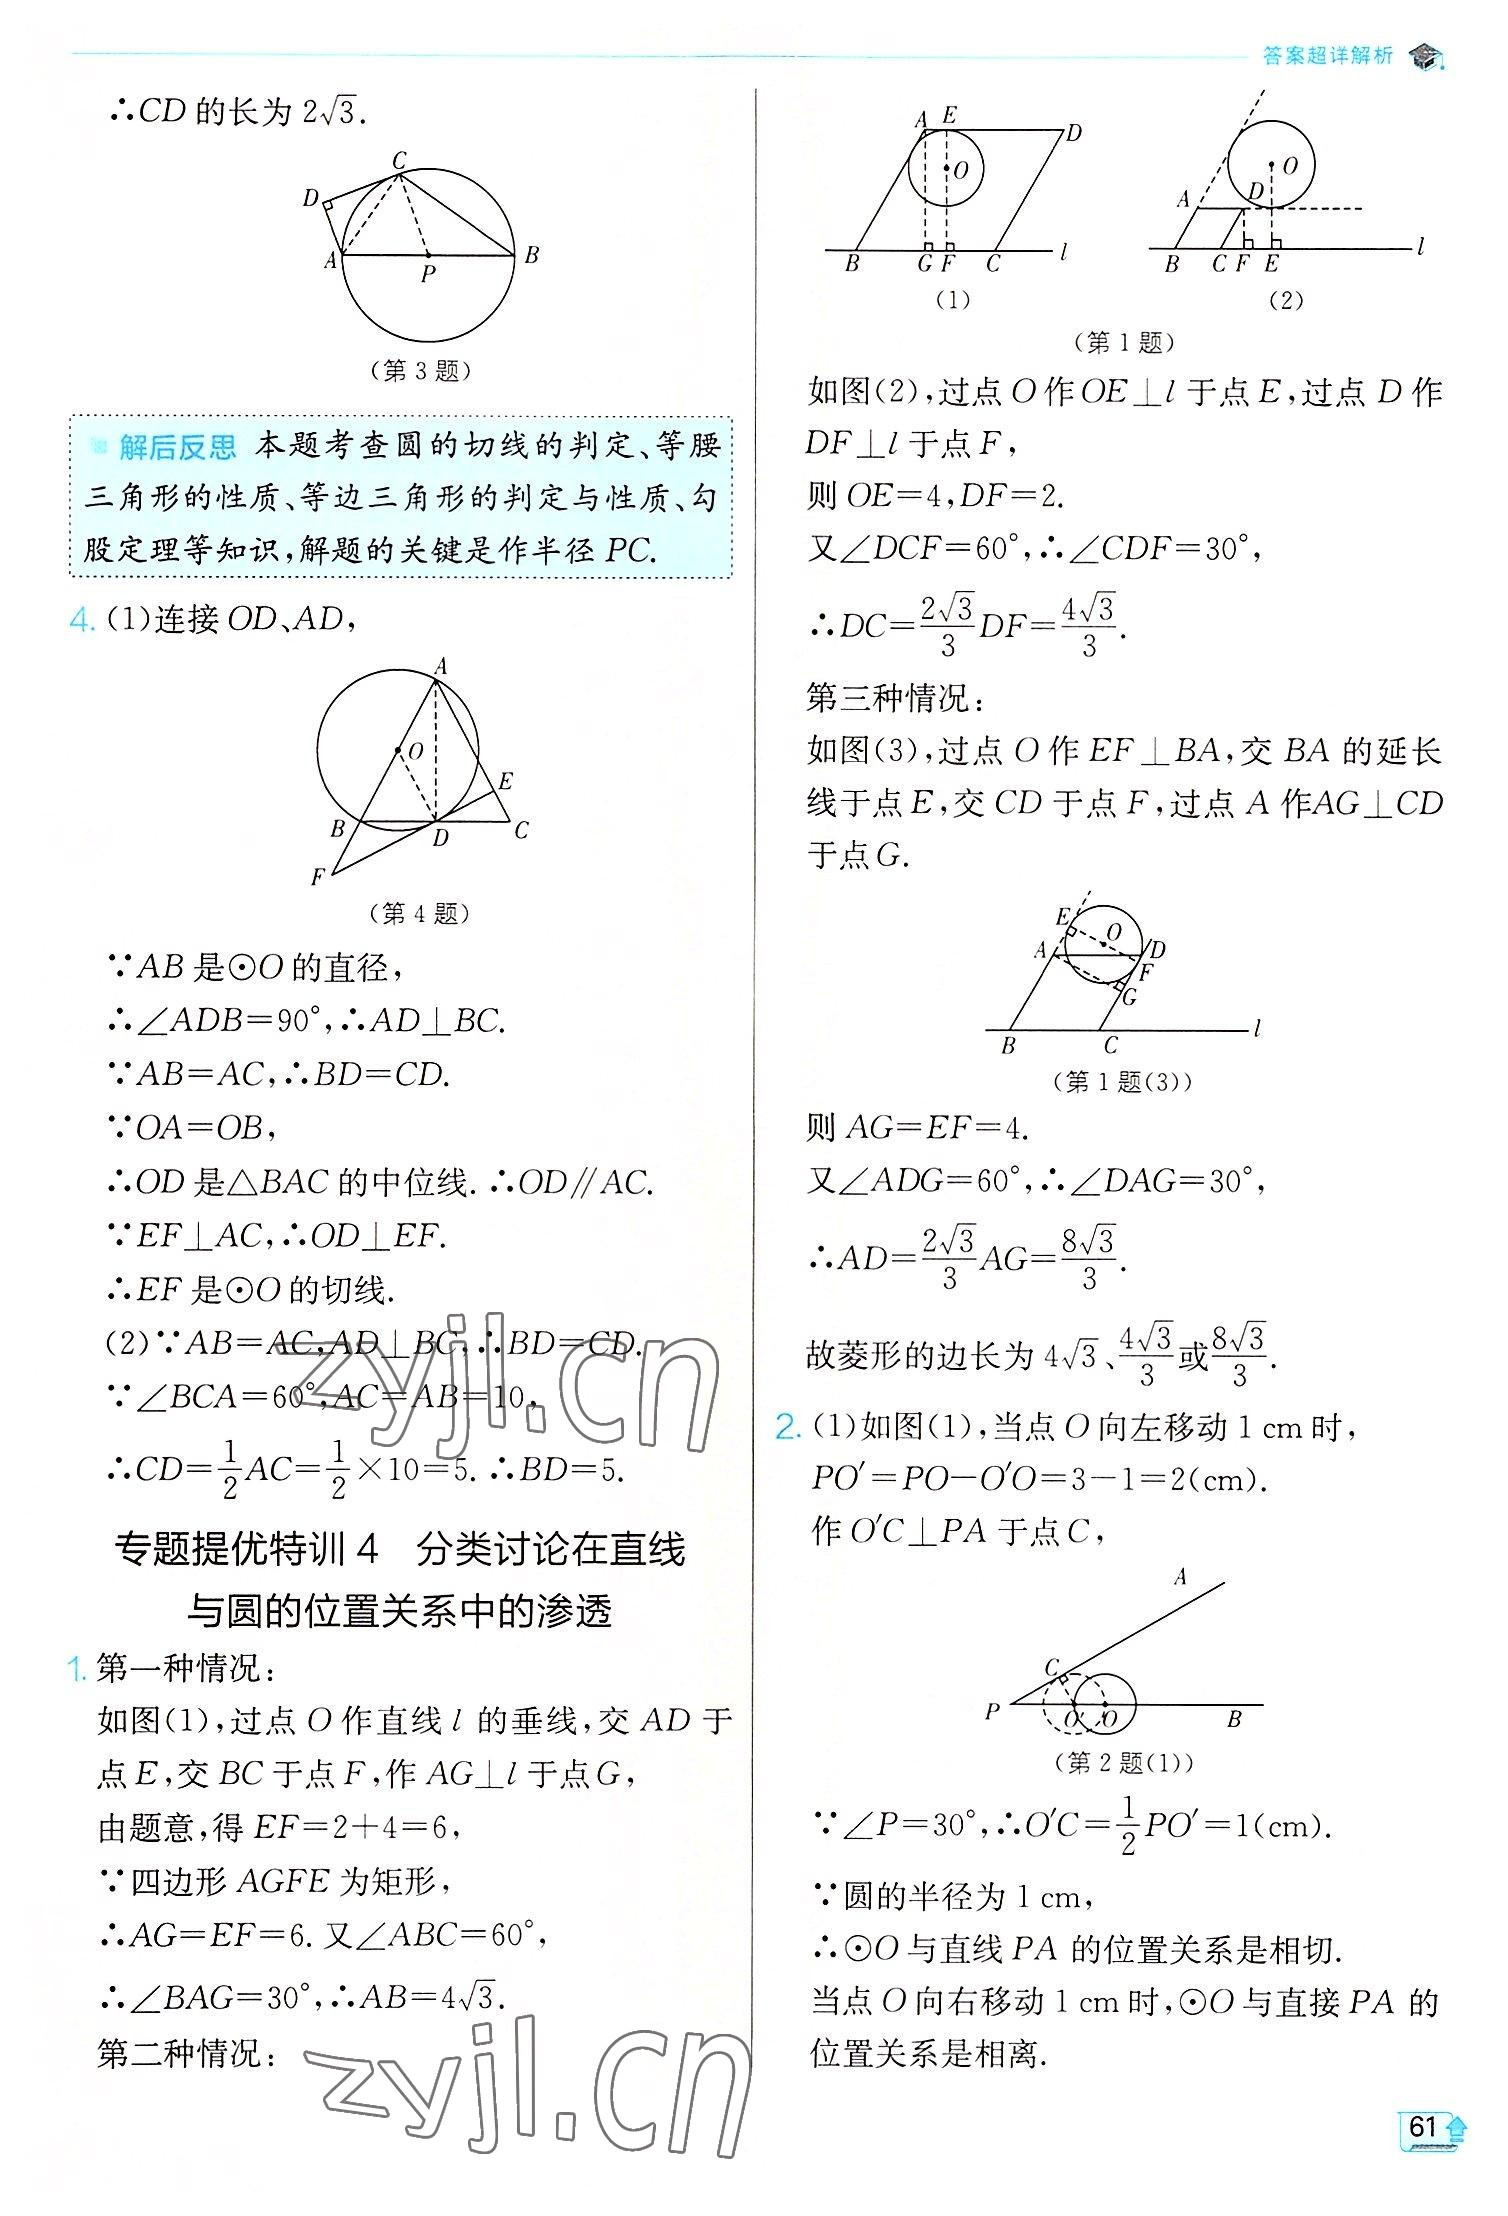 答案超详解析
∴CD的长为2√3.
C
D
A
P
B
(第3题)
解后反思 本题考查圆的切线的判定、等腰
三角形的性质、等边三角形的判定与性质、勾
股定理等知识,解题的关键是作半径PC.
4. (1)连接OD、AD,
A
O
E
B
D
C
F
(第4题)
∵AB是⊙O的直径,
∴∠ADB=90°,∴AD⊥BC.
∵AB=AC,∴BD=CD.
∵OA=OB,
∴OD是△BAC的中位线.∴OD∥AC.
∵EF⊥AC,∴OD⊥EF.
∴EF是⊙O的切线.
(2)∵AB=AC,AD⊥BC,∴BD=CD.
∵∠BCA=60°,AC=AB=10,
∴CD=1/2AC=1/2×10=5.∴BD=5.
专题提优特训4 分类讨论在直线
与圆的位置关系中的渗透
1. 第一种情况:
如图(1),过点O作直线l的垂线,交AD于
点E,交BC于点F,作AG⊥l于点G,
由题意,得EF=2+4=6,
∵四边形AGFE为矩形,
∴AG=EF=6.又∠ABC=60°,
∴∠BAG=30°,∴AB=4√3.
第二种情况:
zyjl.cn
zyjl.cn
A E D
O
B G F C l
(1)
O
A D
B C F E l
(2)
(第1题)
如图(2),过点O作OE⊥l于点E,过点D作
DF⊥l于点F,
则OE=4,DF=2.
又∠DCF=60°,∴∠CDF=30°,
∴DC=2√3/3DF=4√3/3.
第三种情况:
如图(3),过点O作EF⊥BA,交BA的延长
线于点E,交CD于点F,过点A作AG⊥CD
于点G.
E
O
A D
F
G
B C l
(第1题(3))
则AG=EF=4.
又∠ADG=60°,∴∠DAG=30°,
∴AD=2√3/3AG=8√3/3.
故菱形的边长为4√3、4√3/3或8√3/3.
2. (1)如图(1),当点O向左移动1 cm时,
PO′=PO−O′O=3−1=2(cm).
作O′C⊥PA于点C,
A
C
P O′ O B
(第2题(1))
∵∠P=30°,∴O′C=1/2PO′=1(cm).
∵圆的半径为1 cm,
∴⊙O与直线PA的位置关系是相切.
当点O向右移动1 cm时,⊙O与直接PA的
位置关系是相离.
61